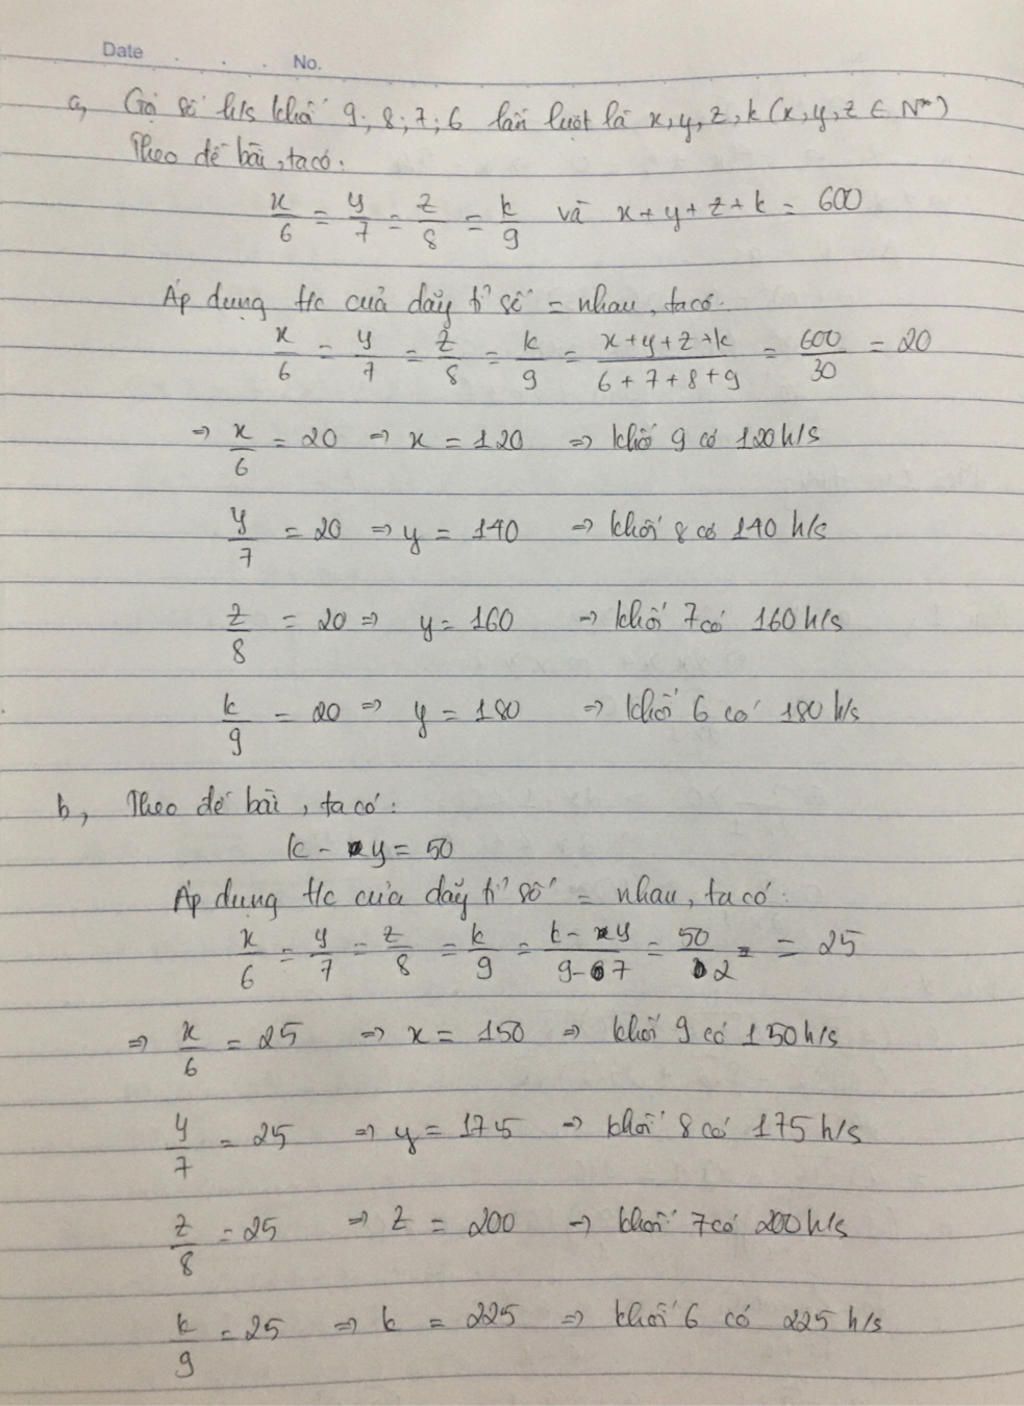 Date . . . No.
a, Gọi số h/s khối 9; 8; 7; 6 lần lượt là x, y, z, k (x, y, z ∈ N*)
Theo đề bài, ta có:
x/6 = y/7 = z/8 = k/9 và x + y + z + k = 600
Áp dụng t/c của dãy tỉ số = nhau, ta có:
x/6 = y/7 = z/8 = k/9 = (x + y + z + k)/(6 + 7 + 8 + 9) = 600/30 = 20
=> x/6 = 20 => x = 120 => khối 9 có 120 h/s
y/7 = 20 => y = 140 => khối 8 có 140 h/s
z/8 = 20 => y = 160 => khối 7 có 160 h/s
k/9 = 20 => y = 180 => khối 6 có 180 h/s
b, Theo đề bài, ta có:
k - y = 50
Áp dụng t/c của dãy tỉ số = nhau, ta có:
x/6 = y/7 = z/8 = k/9 = (k - y)/(9 - 7) = 50/2 = 25
=> x/6 = 25 => x = 150 => khối 9 có 150 h/s
y/7 = 25 => y = 175 => khối 8 có 175 h/s
z/8 = 25 => z = 200 => khối 7 có 200 h/s
k/9 = 25 => k = 225 => khối 6 có 225 h/s